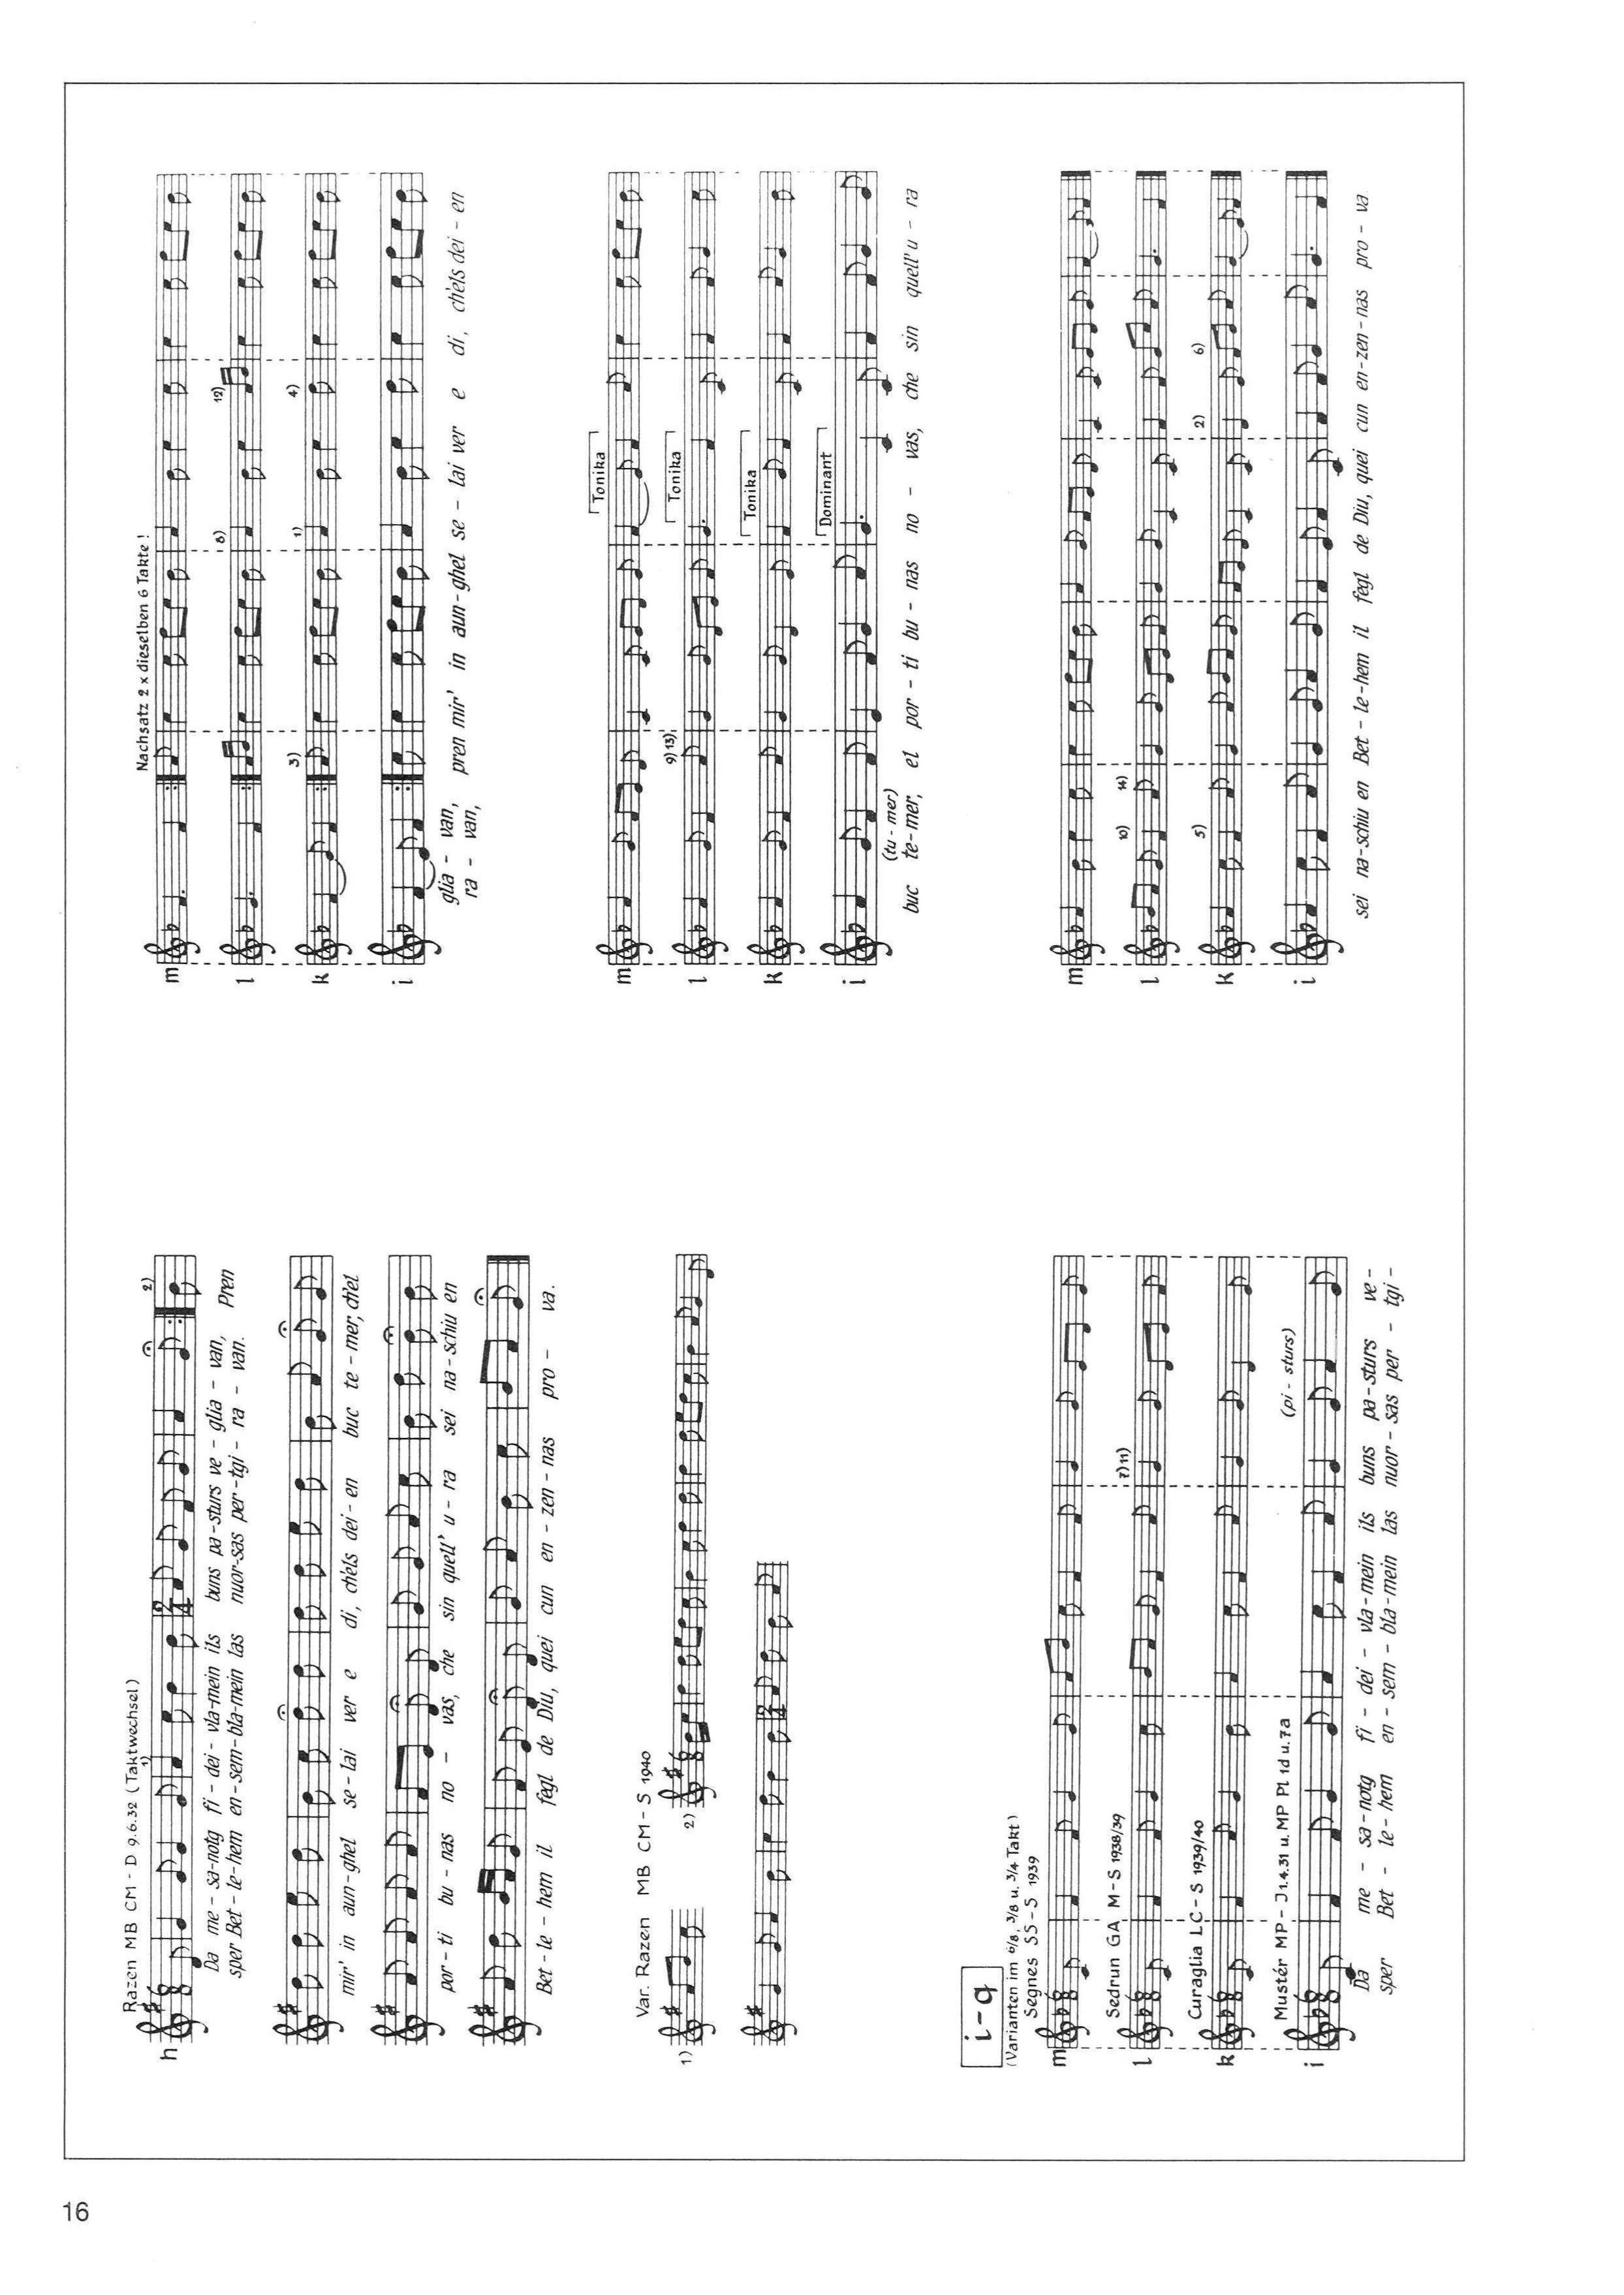 Razen MB CM - D 9.6.32 (Taktwechsel)
h
1)
2)
Da me - sa-notg fi - dei - vla-mein ils buns pa-sturs ve - glia - van, Pren
sper Bet - le-hem en-sem-bla-mein las nuor-sas per-tgi - ra - van.
mir' in aun-ghel se-lai ver e di, ch'els dei-en buc te-mer, ch'el
por-ti bu-nas no - vas, che sin quell' u-ra sei na-schiu en
Bet-le-hem il fegl de Diu, quei cun en-zen-nas pro - va.
Var. Razen MB CM - S 1940
1)
2)
i-q
(Varianten im 6/8, 3/8 u. 3/4 Takt)
Segnes SS - S 1939
m
Sedrun GA M - S 1938/39
7) 11)
l
Curaglia LC - S 1939/40
k
Mustér MP - J 1.4.31 u. MP Pl 1d u. 7a
(pi - sturs)
i
Da me - sa-notg fi - dei - vla-mein ils buns pa-sturs ve -
sper Bet - le-hem en - sem - bla-mein las nuor-sas per - tgi -
Nachsatz 2 x dieselben 6 Takte!
m
8)
12)
l
3)
1)
4)
k
i
glia - van, pren mir' in aun-ghel se - lai ver e di, ch'els dei - en
ra - van,
Tonika
m
9) 13)
Tonika
l
Tonika
k
Dominant
i
(tu - mer)
buc te-mer, el por - ti bu - nas no - vas, che sin quell' u - ra
m
10)
14)
l
5)
2)
6)
k
i
sei na-schiu en Bet - le-hem il fegl de Diu, quei cun en-zen-nas pro - va
16